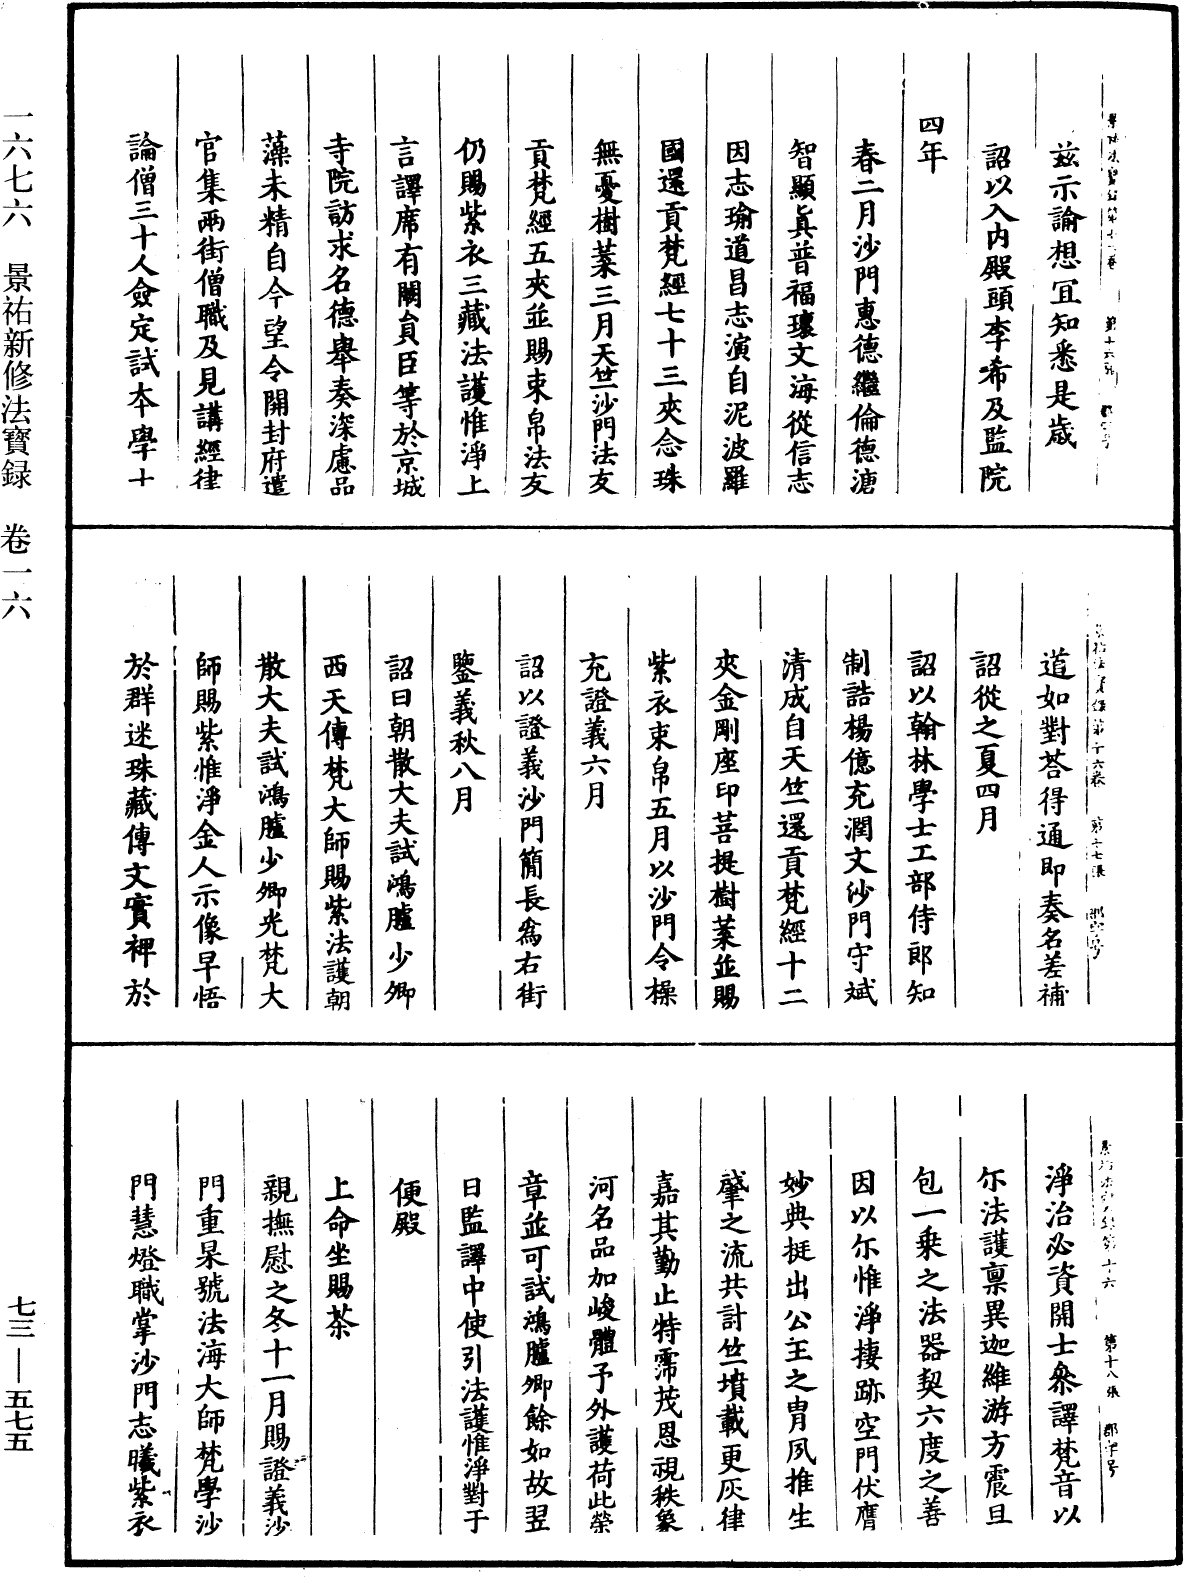 茲示論想宜知悉是歳
詔以入內殿頭李希及監院
四年
春二月沙門惠德繼倫德溏
智顯真普福瓌文海從信志
因志瑜道昌志演自泥波羅
國還貢梵經七十三夾念珠
無憂樹葉三月天竺沙門法友
貢梵經五夾並賜束帛法友
仍賜紫衣三藏法護惟淨上
言譯席有闕員臣等於京城
寺院訪求名德舉奏深慮品
藻未精自今望令開封府遣
官集兩街僧職及見講經律
論僧三十人僉定試本學十
道如對荅得通即奏名差補
詔從之夏四月
詔以翰林學士工部侍郎知
制誥楊億充潤文沙門守斌
清成自天竺還貢梵經十二
夾金剛座印菩提樹葉並賜
紫衣束帛五月以沙門令操
充證義六月
詔以證義沙門簡長為右街
鑒義秋八月
詔曰朝散大夫試鴻臚少卿
西天傳梵大師賜紫法護朝
散大夫試鴻臚少卿光梵大
師賜紫惟淨金人示像早悟
於群迷珠藏傳文實裨於
淨治必資開士叅譯梵音以
尓法護稟異迦維游方震旦
包一乗之法器契六度之善
因以尓惟淨捿跡空門伏膺
妙典挺出公王之胄夙推生
肇之流共討竺墳載更灰律
嘉其勤止特霈茂恩視秩象
河名品加峻體予外護荷此榮
章並可試鴻臚卿餘如故翌
日監譯中使引法護惟淨對于
便殿
上命坐賜茶
親撫慰之冬十一月賜證義沙
門重杲號法海大師梵學沙
門慧燈職掌沙門志曦紫衣
一六七六　景祐新修法寶録　卷一六
七三—五七五